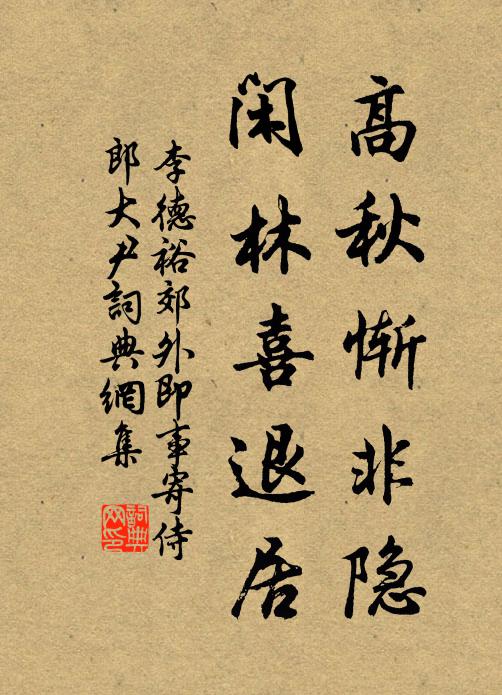 高秋惭非隐
闲林喜退居
李德裕郊外即事寄侍
郎大尹詞典網集
詞典网印